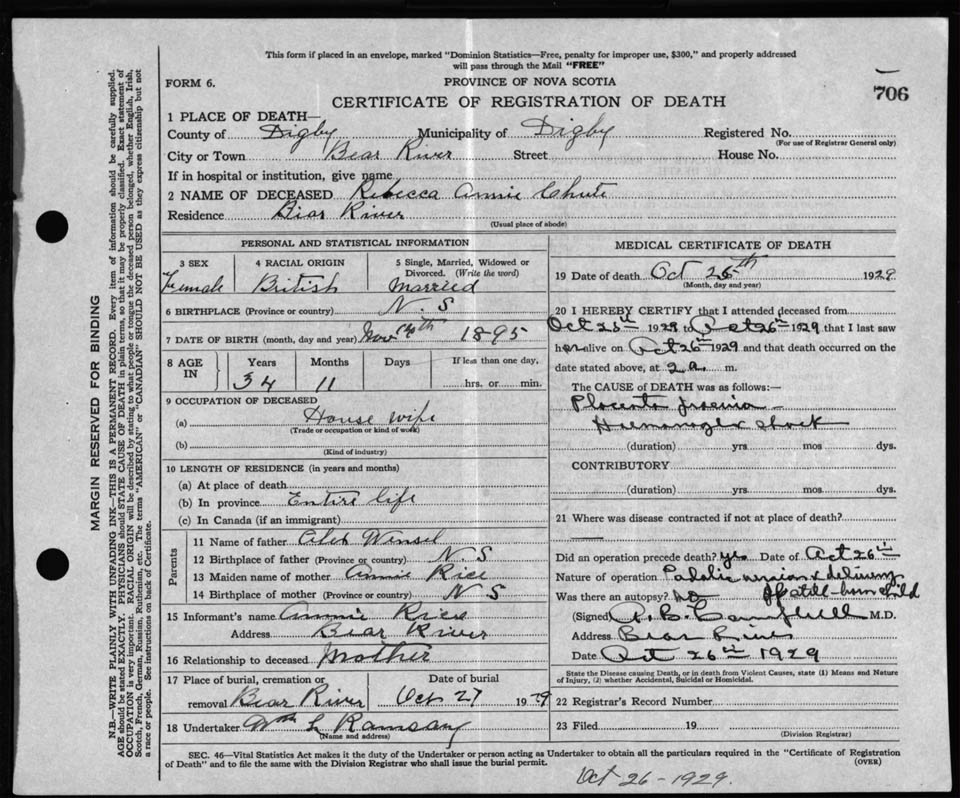 This form if placed in an envelope, marked "Dominion Statistics—Free, penalty for improper use, $300," and properly addressed
will pass through the Mail "FREE"
FORM 6.
PROVINCE OF NOVA SCOTIA
706
CERTIFICATE OF REGISTRATION OF DEATH
1 PLACE OF DEATH—
County of Digby Municipality of Digby Registered No.
(For use of Registrar General only)
City or Town Bear River Street House No.
If in hospital or institution, give name
2 NAME OF DECEASED Rebecca Annie Chute
Residence Bear River
(Usual place of abode)
PERSONAL AND STATISTICAL INFORMATION
3 SEX 4 RACIAL ORIGIN 5 Single, Married, Widowed or
Divorced. (Write the word)
Female British Married
6 BIRTHPLACE (Province or country) N. S
7 DATE OF BIRTH (month, day and year) Nov 1895
8 AGE IN Years Months Days If less than one day,
34 11 hrs. or min.
9 OCCUPATION OF DECEASED
(a) House wife
(Trade or occupation or kind of work)
(b)
(Kind of industry)
10 LENGTH OF RESIDENCE (in years and months)
(a) At place of death
(b) In province Entire life
(c) In Canada (if an immigrant)
Parents
11 Name of father
12 Birthplace of father (Province or country) N S
13 Maiden name of mother Annie Rice
14 Birthplace of mother (Province or country) N S
15 Informant's name Annie Rice
Address Bear River
16 Relationship to deceased Mother
17 Place of burial, cremation or Date of burial
removal Bear River Oct 27 1929
18 Undertaker Wm L Ramsay
(Name and address)
MEDICAL CERTIFICATE OF DEATH
19 Date of death Oct 1929
(Month, day and year)
20 I HEREBY CERTIFY that I attended deceased from
Oct 25th 1929 to Oct 26th 1929 that I last saw
her alive on Oct 26th 1929 and that death occurred on the
date stated above, at 2 a. m.
The CAUSE of DEATH was as follows:—
Placenta
shock
(duration) yrs. mos. dys.
CONTRIBUTORY
(duration) yrs. mos. dys.
21 Where was disease contracted if not at place of death?
Did an operation precede death? yes Date of Oct 26th
Nature of operation version & delivery
Was there an autopsy? No of still-born child
(Signed A. B. Campbell M.D.
Address Bear River
Date Oct 26th 1929
State the Disease causing Death, or in death from Violent Causes, state (1) Means and Nature
of Injury, (2) whether Accidental, Suicidal or Homicidal.
22 Registrar's Record Number
23 Filed 19
(Division Registrar)
SEC. 46—Vital Statistics Act makes it the duty of the Undertaker or person acting as Undertaker to obtain all the particulars required in the "Certificate of Registration
of Death" and to file the same with the Division Registrar who shall issue the burial permit.
(OVER)
Oct 26-1929.
MARGIN RESERVED FOR BINDING
N.B.—WRITE PLAINLY WITH UNFADING INK—THIS IS A PERMANENT RECORD. Every item of information should be carefully supplied.
AGE should be stated EXACTLY. PHYSICIANS should STATE CAUSE OF DEATH in plain terms, so that it may be properly classified. Exact statement of
OCCUPATION is very important. RACIAL ORIGIN will be described by stating to what people or tongue the deceased person belonged, whether English, Irish,
Scotch, French, German, Russian, Ruthenian, etc. The terms "AMERICAN" or "CANADIAN" SHOULD NOT BE USED as they express citizenship but not
a race or people. See instructions on back of Certificate.